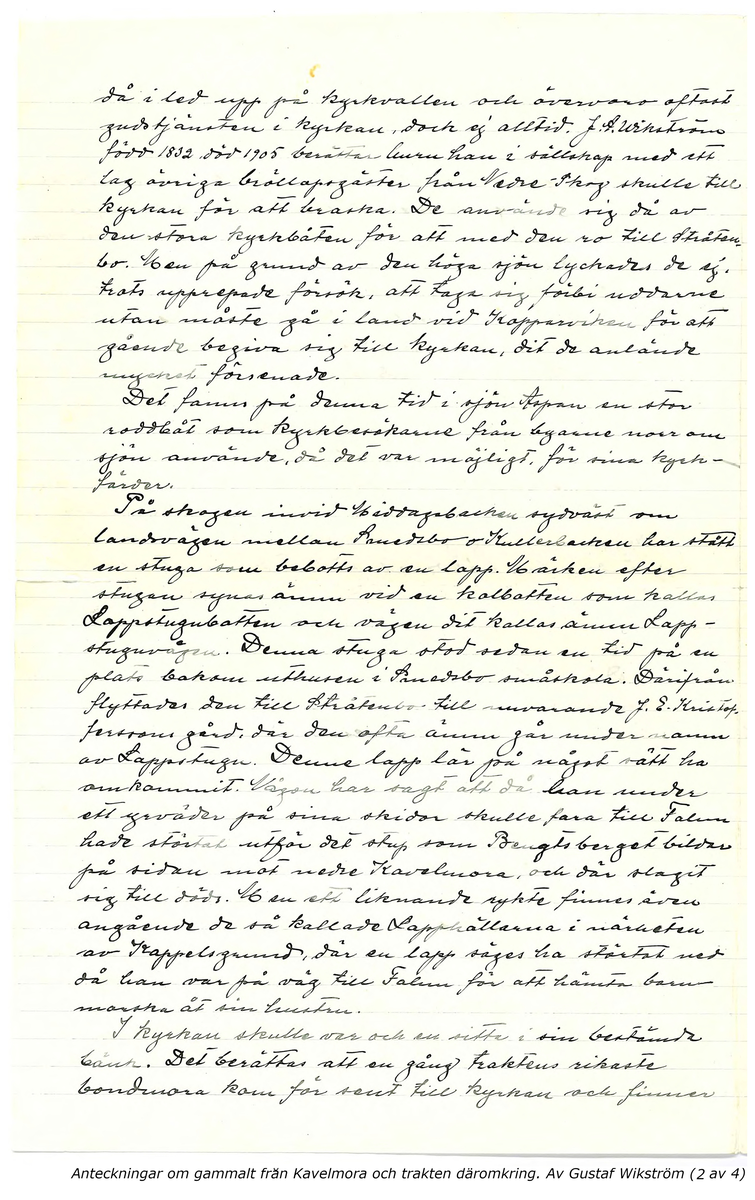 då i led upp på kyrkvallen och övervaro oftast
gudstjänsten i kyrkan, dock ej alltid. J.A. Wikström
född 1832 död 1905 berättar huru han i sällskap med ett
lag övriga bröllopsgäster från Nedre-Skog skulle till
kyrkan för att braska. De använde sig då av
den stora kyrkbåten för att med den ro till Stråten-
bo. Men på grund av den höga sjön lyckades de ej,
trots upprepade försök, att taga sig förbi uddarne
utan måste gå i land vid Kopparviken för att
gående begiva sig till kyrkan, dit de anlände
mycket försenade.
Det fanns på denna tid i sjön Aspan en stor
roddbåt som kyrkbesökarne från byarne norr om
sjön använde, då det var möjligt, för sina kyrk-
färder.
På skogen invid Middagsbacken sydväst om
landsvägen mellan Smedsbo o Kullerbacken har stått
en stuga som bebotts av en lapp. Märken efter
stugan synas ännu vid en kolbotten som kallas
Lappstugubotten och vägen dit kallas ännu Lapp-
stuguvägen. Denna stuga stod sedan en tid på en
plats bakom uthusen i Smedsbo småskola. Därifrån
flyttades den till Stråtenbo till nuvarande J. E. Kristof-
fersons gård, där den ofta ännu går under namn
av Lappstugu. Denne lapp lär på något sätt ha
omkommit. Någon har sagt att då han under
ett yrväder på sina skidor skulle fara till Falun
hade störtat utför det stup som Bengtsberget bildar
på sidan mot nedre Kavelmora, och där slagit
sig till döds. Men ett liknande rykte finnes även
angående de så kallade Lapphällarna i närheten
av Kappelsgrund, där en lapp säges ha störtat ned
då han var på väg till Falun för att hämta barn
morska åt sin hustru.
I kyrkan skulle var och en sitta i sin bestämda
bänk. Det berättas att en gång traktens rikaste
bondmora kom för sent till kyrkan och finner
Anteckningar om gammalt från Kavelmora och trakten däromkring. Av Gustaf Wikström (2 av 4)